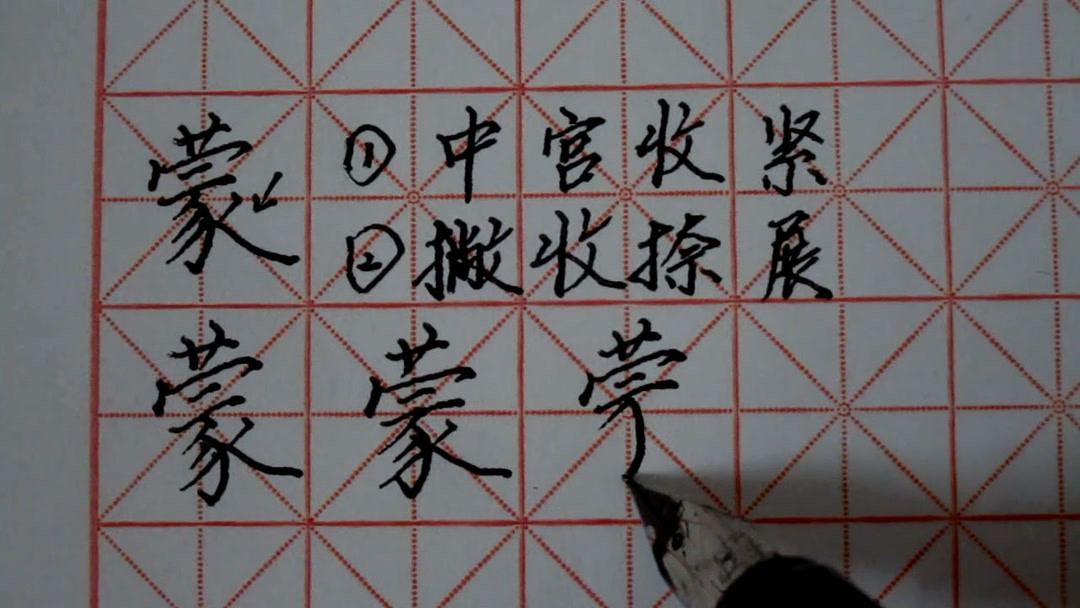 蒙 ①中宫收紧
②撇收捺展
蒙 蒙